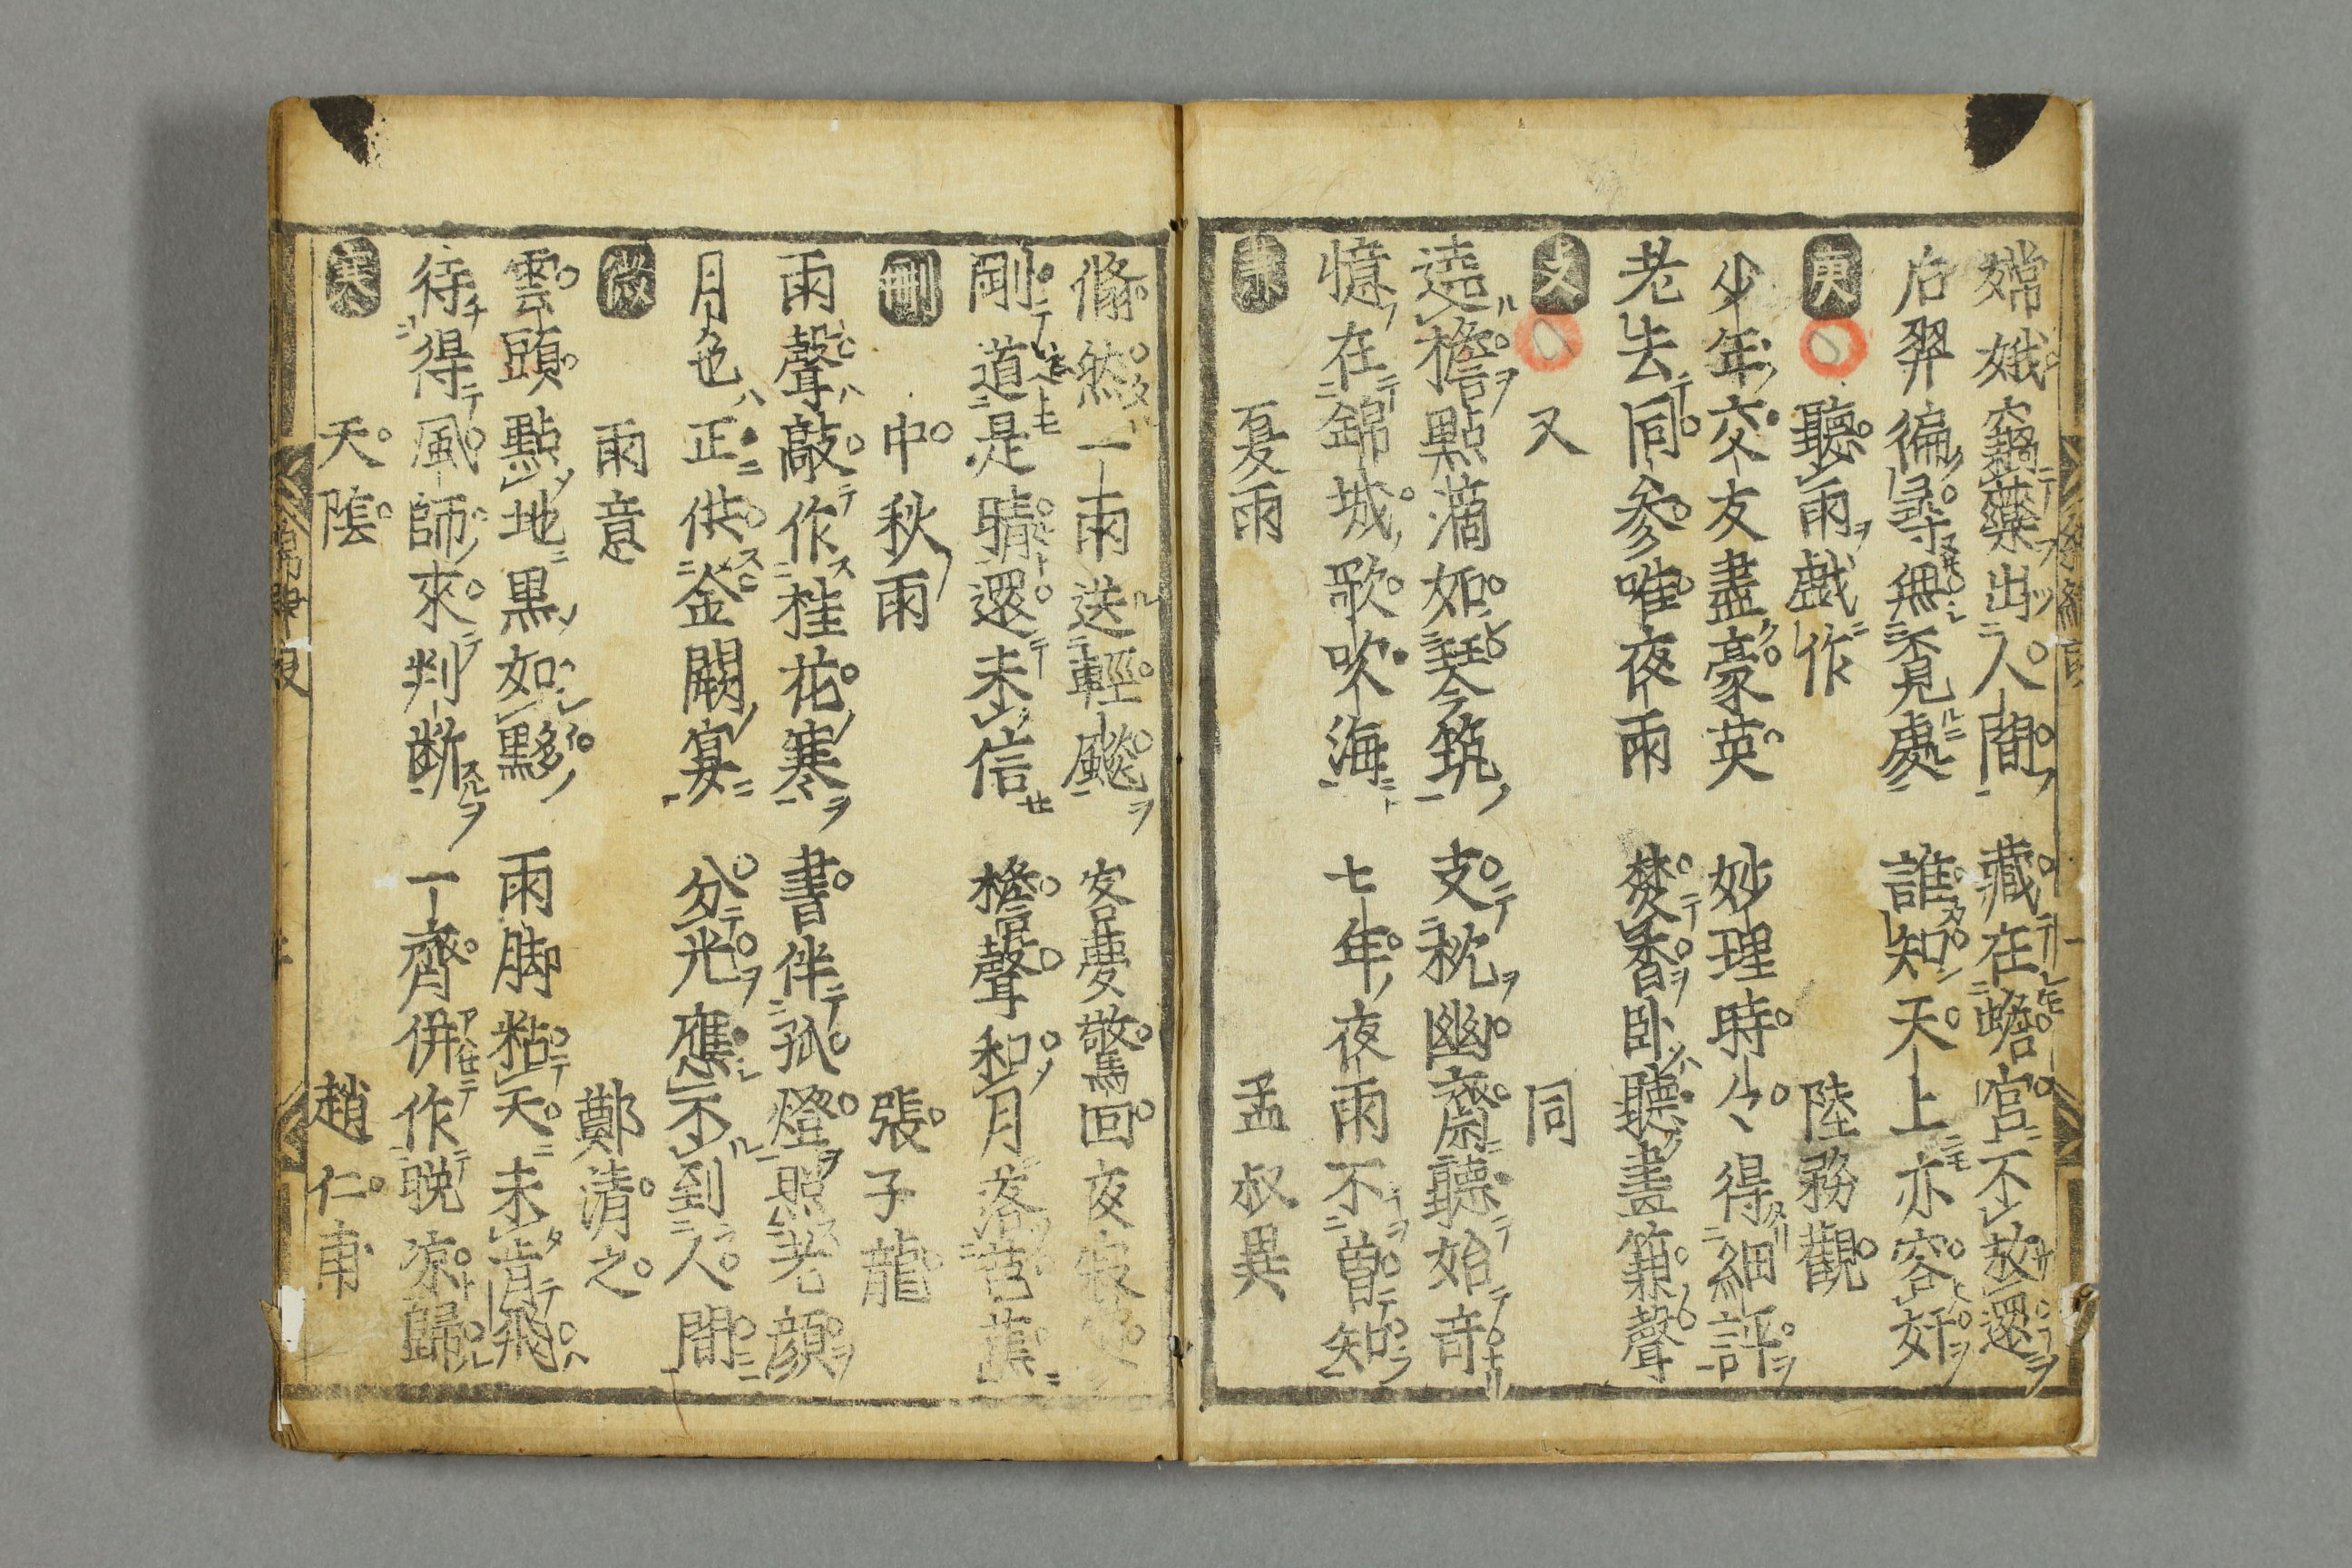 嫦娥竊藥出人間 藏在蟾宮不放還
后羿徧尋無覔處 誰知天上亦容奸
庚 聽雨戯作 陸務觀
少年交友盡豪英 妙理時々得細評
老去同參唯夜雨 焚香卧聽畫簷聲
支 又 同
遶檐點滴如琴筑 支枕幽齋聽始奇
憶在錦城歌吹海 七年夜雨不曽知
夏雨 孟叔異
翛然一雨送輕颸 客夢驚回夜寂
剛道是晴還未信 檐聲和月落芭蕉
刪 中秋雨 張子龍
雨聲敲作桂花寒 書伴孤燈照老顔
月色正供金闕宴 分光應不到人間
微 雨意 鄭清之
雲頭點地黒如黟 雨脚粘天未肯飛
待得風師來判断 一齊併作晩凉歸
天陰 趙仁甫